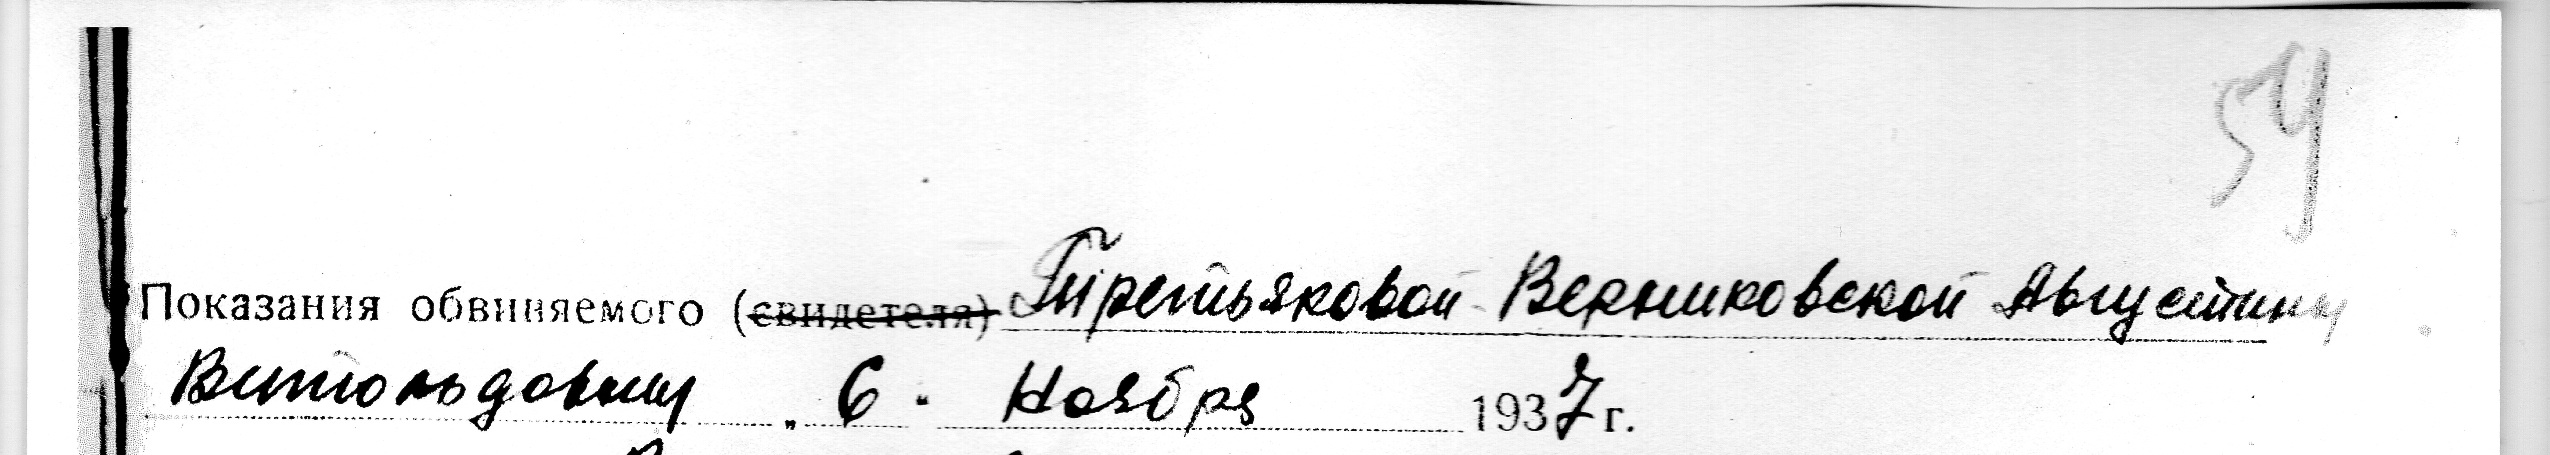 59
Показания обвиняемого (свидетеля) Третьяковой Верниковской Августины
Витольдовны „ 6 " Ноября 1937 г.